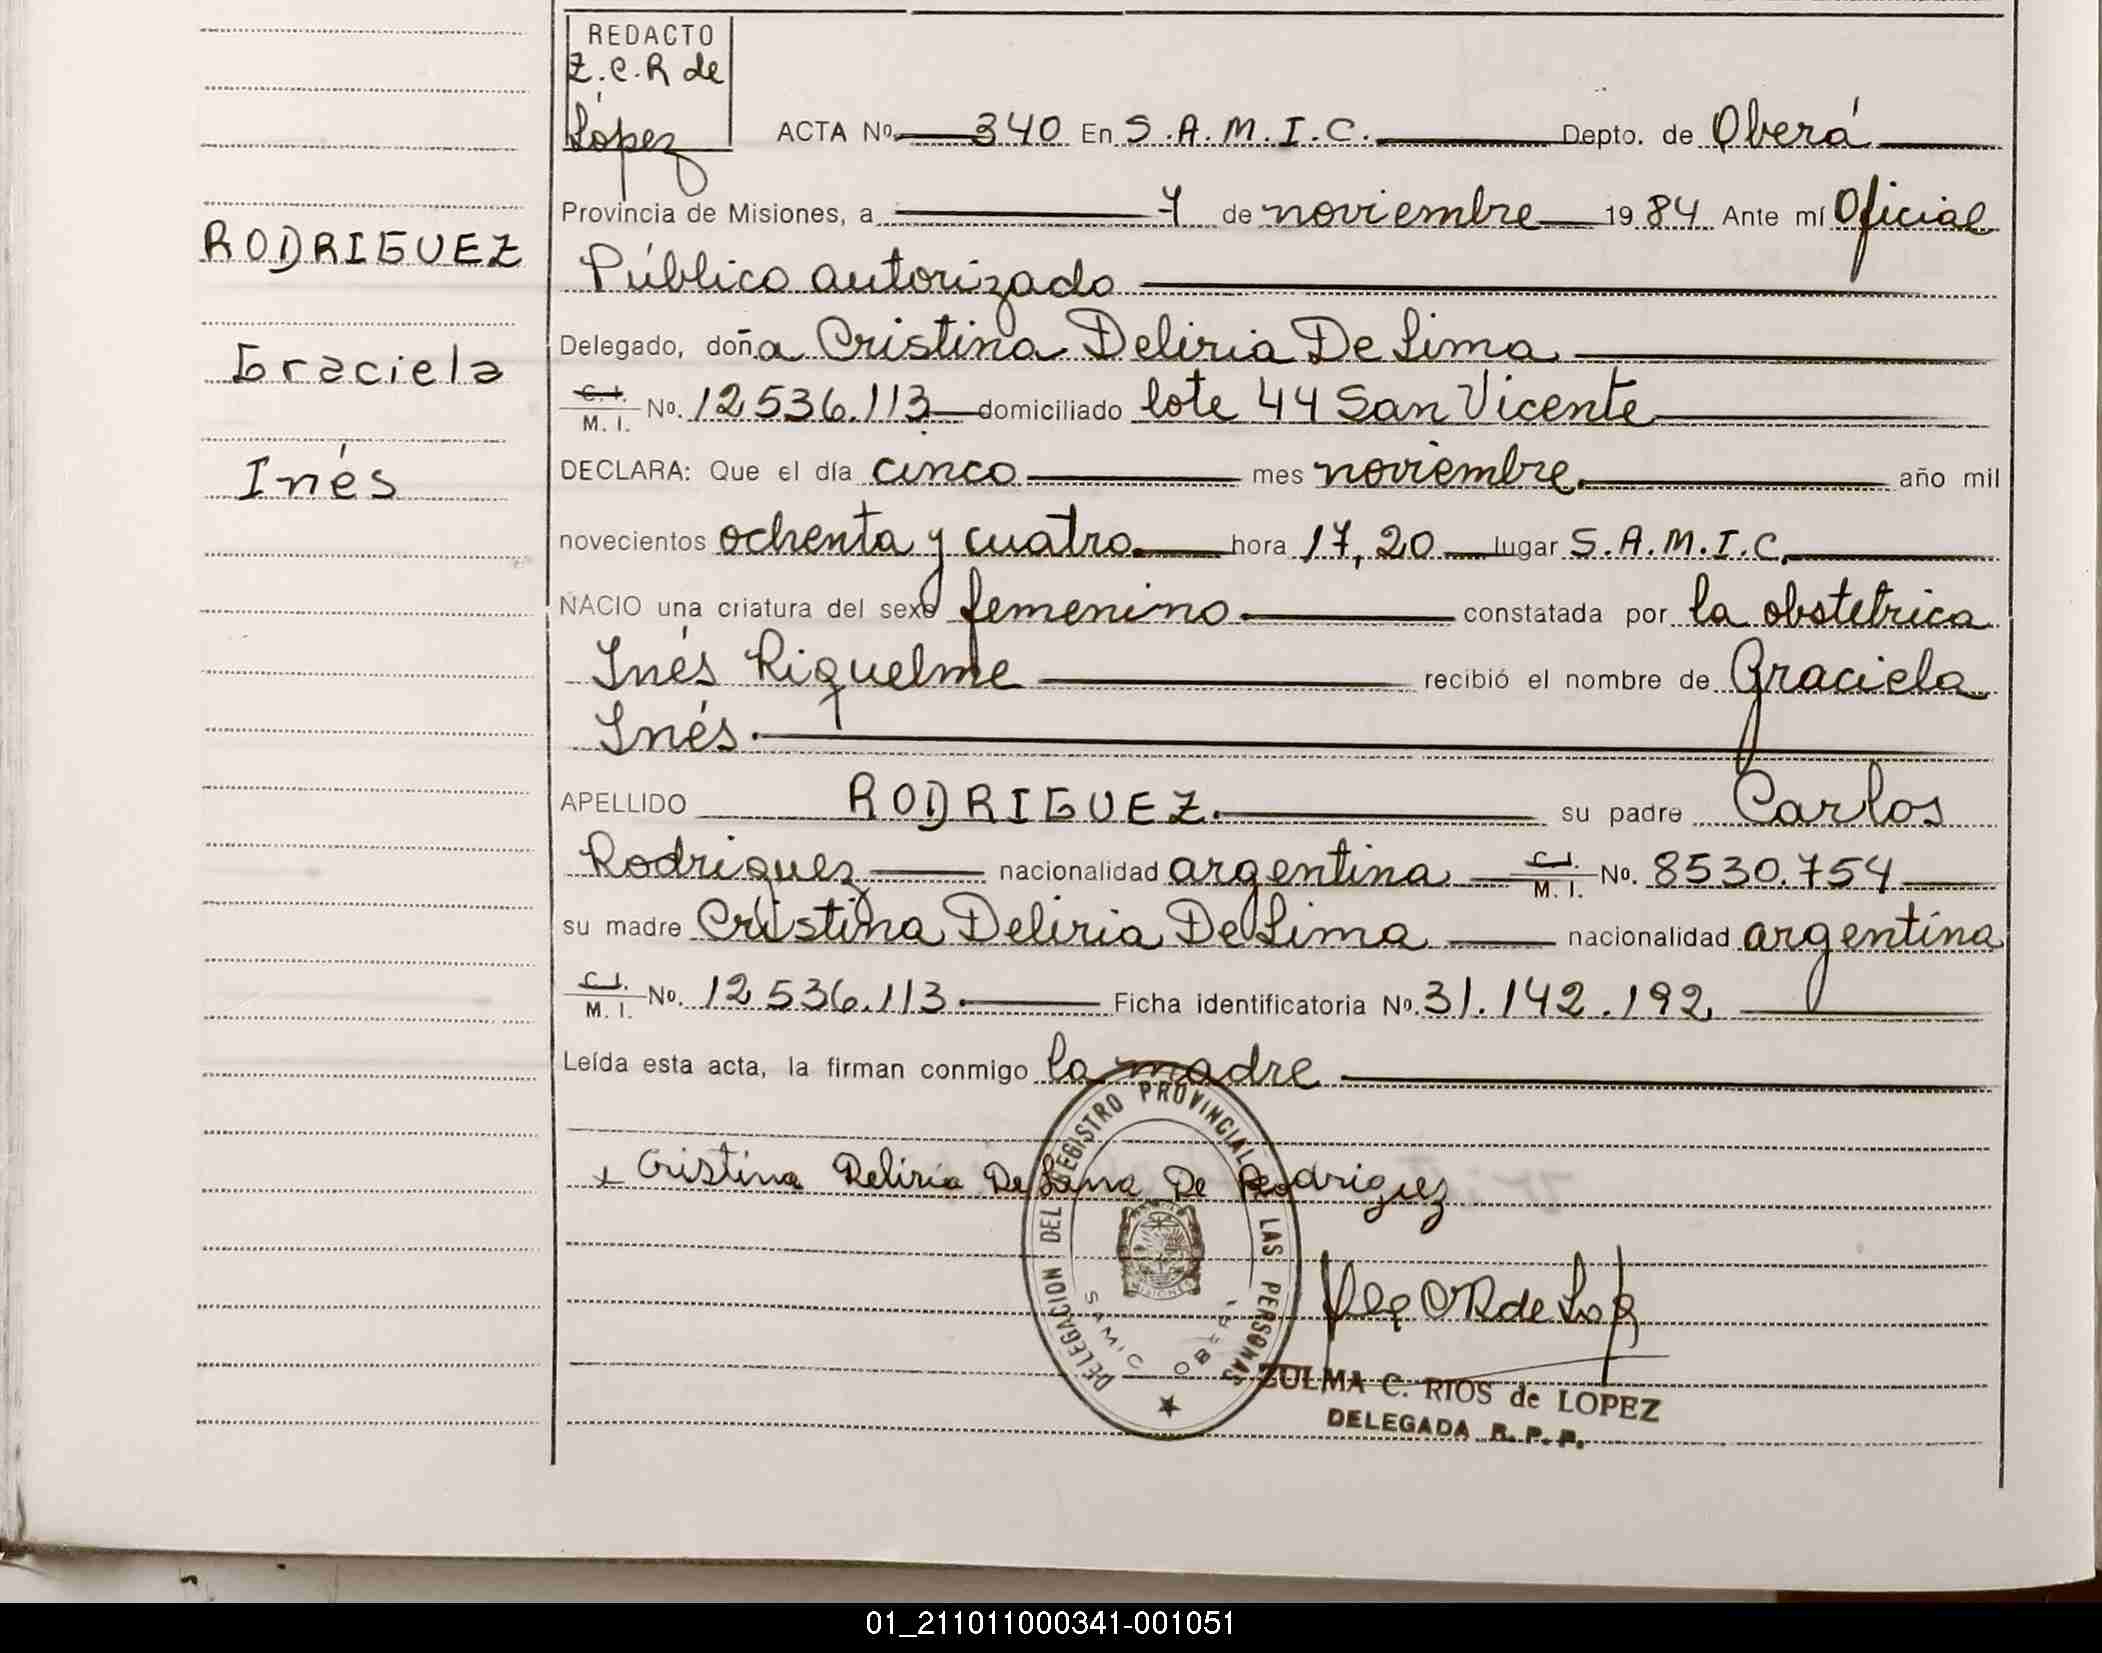 REDACTO
Z.C.R de
López
ACTA Nº 340 En S.A.M.I.C. Depto. de Oberá
Provincia de Misiones, a 7 de noviembre 1984 Ante mí Oficial
Público autorizado
Delegado, doña Cristina Deliria De Lima
C.I. M.I. Nº. 12.536.113 domiciliado lote 44 San Vicente
DECLARA: Que el día cinco mes noviembre año mil
novecientos ochenta y cuatro hora 17,20 lugar S.A.M.I.C.
NACIO una criatura del sexo femenino constatada por la obstetrica
Inés Riquelme recibió el nombre de Graciela
Inés
APELLIDO RODRIGUEZ su padre Carlos
Rodriguez nacionalidad argentina C.I. M.I. Nº. 8530.754
su madre Cristina Deliria De Lima nacionalidad argentina
C.I. M.I. Nº. 12.536.113 Ficha identificatoria Nº. 31.142.192
Leída esta acta, la firman conmigo la madre
Cristina Deliria De Lima De Rodriguez
DELEGACION DEL REGISTRO PROVINCIAL LAS PERSONAS
SAMIC OBERA
MISIONES
ZULMA C. RIOS de LOPEZ
DELEGADA R.P.P.
RODRIGUEZ
Graciela
Inés
01_211011000341-001051